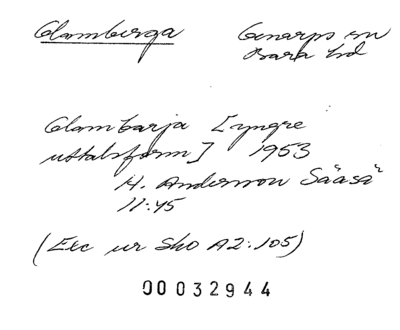 Glamberga Genarps sn
Bara hd
Glambarja [yngre
uttalsform] 1953
H. Andersson Såäsä
11:45
(Exc ur SkO A2:105)
00032944